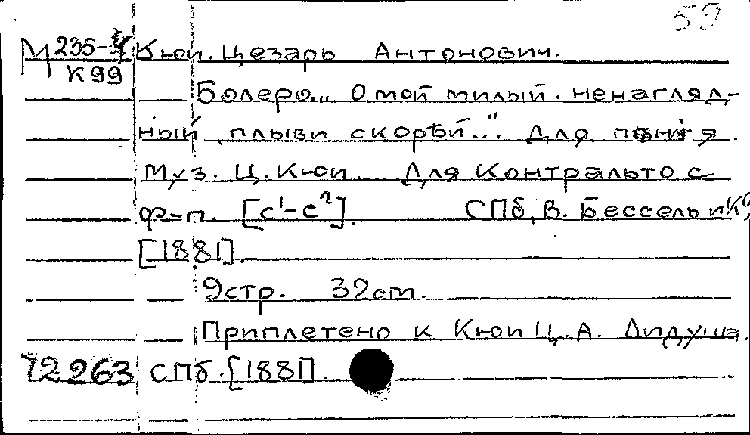 59
М 235-
К 99
Кюи. Цезарь Антонович.
Болеро „ О мой милый. ненагляд-
ный плыви скорѣй..." Для пѣнiя
Муз. Ц. Кюи. Для Контральто с
ф-п. [c¹-c²]. СПб, В. Бессель и Кº,
[1881].
9стр. 32см.
Приплетено к Кюи Ц. А. Лидуша.
72263 СПб. [1881].